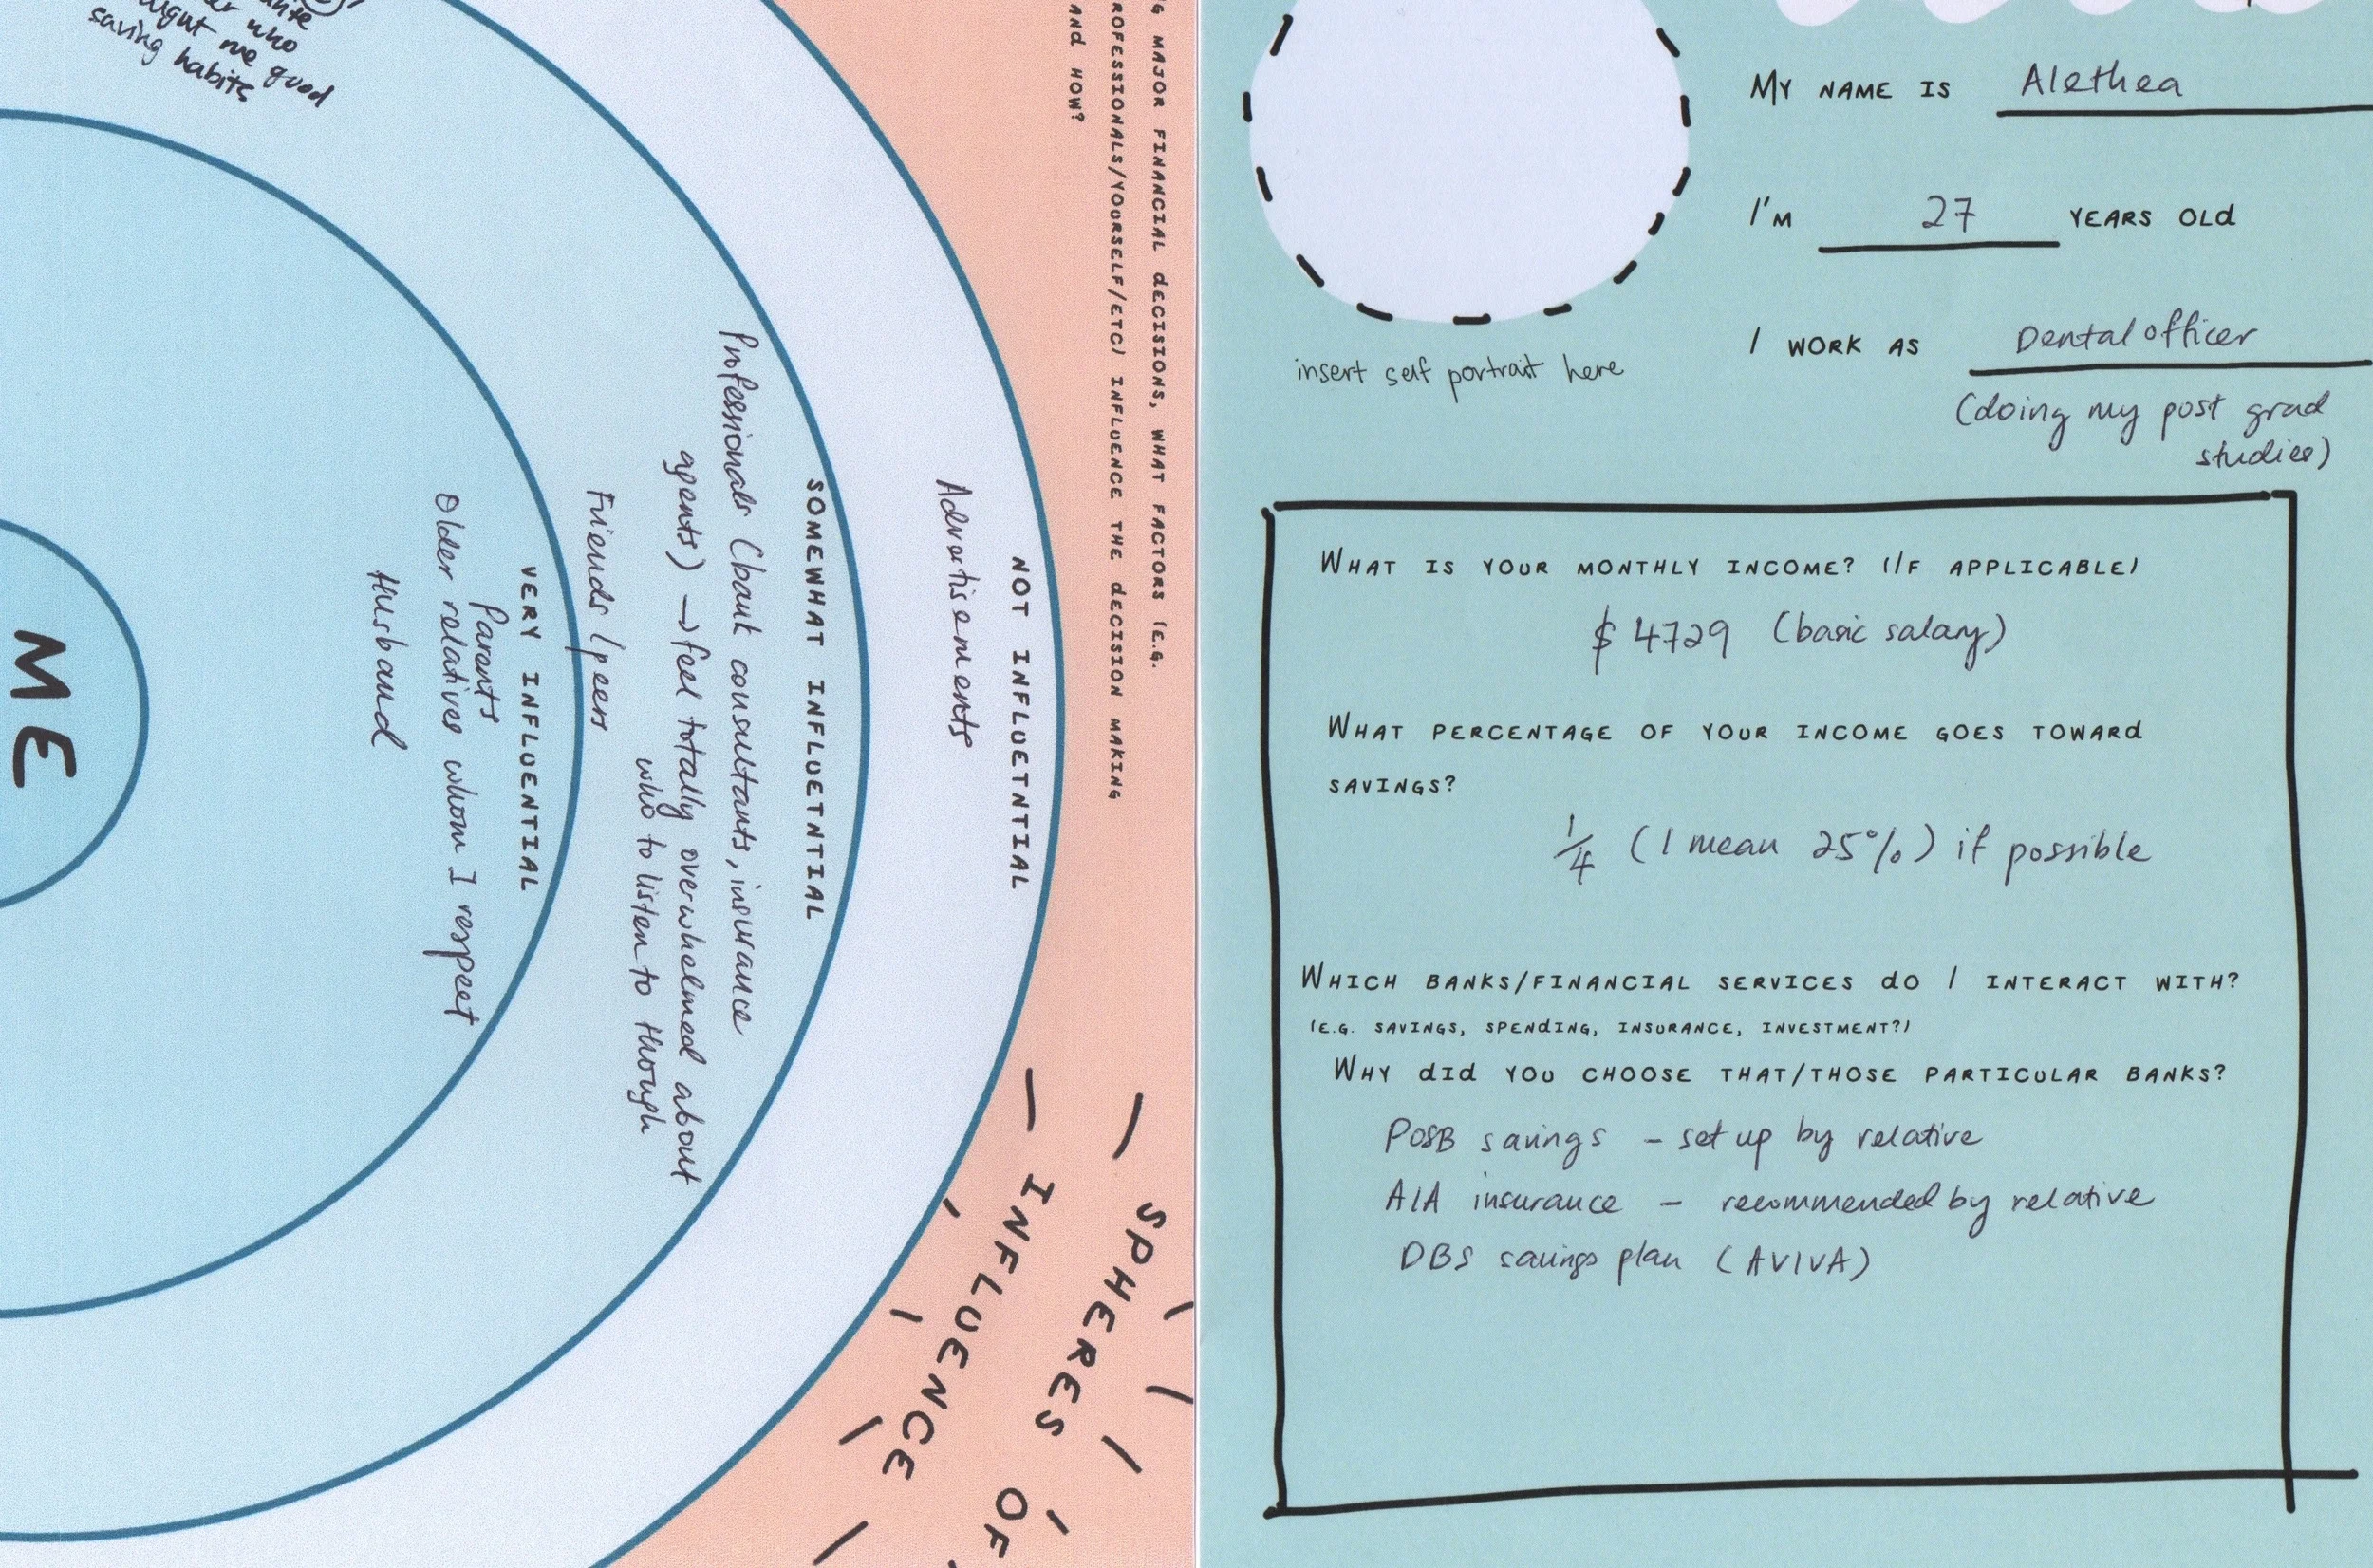 who
me good
saving habits
G MAJOR FINANCIAL DECISIONS, WHAT FACTORS (E.G.
ROFESSIONALS/YOURSELF/ETC) INFLUENCE THE DECISION MAKING
AND HOW?
NOT INFLUETNTIAL
Advertisements
SOMEWHAT INFLUETNTIAL
Professionals (bank consultants, insurance
agents) → feel totally overwhelmed about
who to listen to though
Friends / peers
VERY INFLUENTIAL
Parents
Older relatives whom I respect
Husband
ME
SPHERES OF
INFLUENCE
MY NAME IS Alethea
I'M 27 YEARS OLD
I WORK AS Dental officer
(doing my post grad
studies)
insert self portrait here
WHAT IS YOUR MONTHLY INCOME? (IF APPLICABLE)
$4729 (basic salary)
WHAT PERCENTAGE OF YOUR INCOME GOES TOWARD
SAVINGS?
1/4 (I mean 25%) if possible
WHICH BANKS/FINANCIAL SERVICES DO I INTERACT WITH?
(E.G. SAVINGS, SPENDING, INSURANCE, INVESTMENT?)
WHY DID YOU CHOOSE THAT/THOSE PARTICULAR BANKS?
POSB savings - set up by relative
AIA insurance - recommended by relative
DBS savings plan (AVIVA)